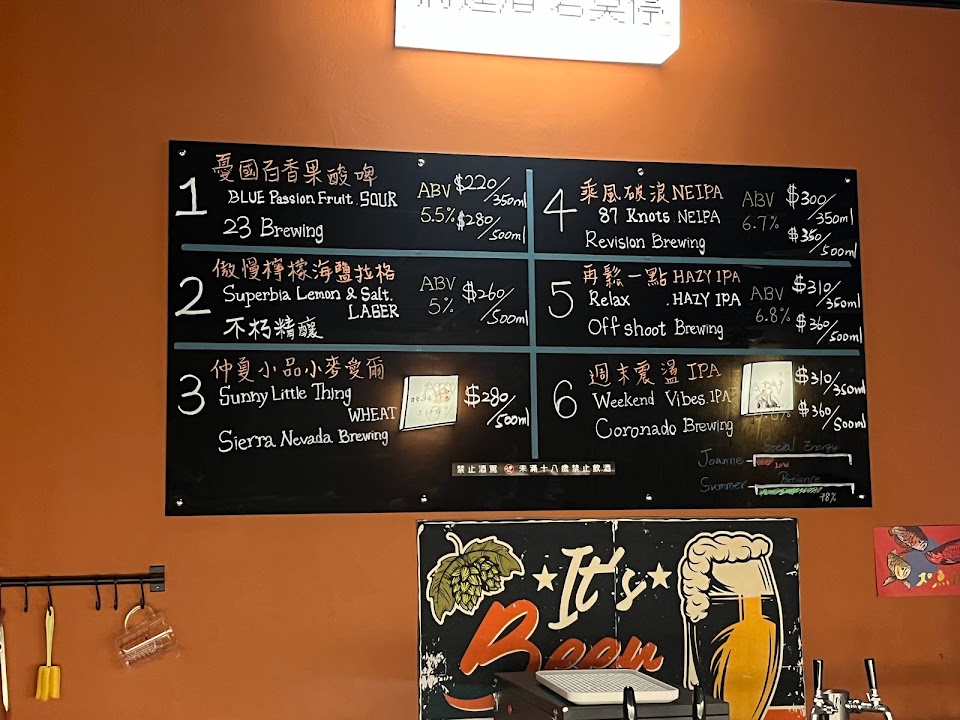 1
憂國百香果酸啤
BLUE Passion Fruit. SOUR
23 Brewing
ABV
5.5%
$220/350ml
$280/500ml
2
傲慢檸檬海鹽拉格
Superbia Lemon & Salt.
LAGER
不朽精釀
ABV
5%
$260/500ml
3
仲夏小品小麥愛爾
Sunny Little Thing
WHEAT
Sierra Nevada Brewing
$280/500ml
4
乘風破浪 NEIPA
87 Knots .NEIPA
Revision Brewing
ABV
6.7%
$300/350ml
$350/500ml
5
再鬆一點 HAZY IPA
Relax .HAZY IPA
Offshoot Brewing
ABV
6.8%
$310/350ml
$360/500ml
6
週末震盪 IPA
Weekend Vibes.IPA
Coronado Brewing
$310/350ml
$360/500ml
Joanne
Social Energy
Low
Summer
Patience
78%
禁止酒駕 未滿十八歲禁止飲酒
It's
Beer